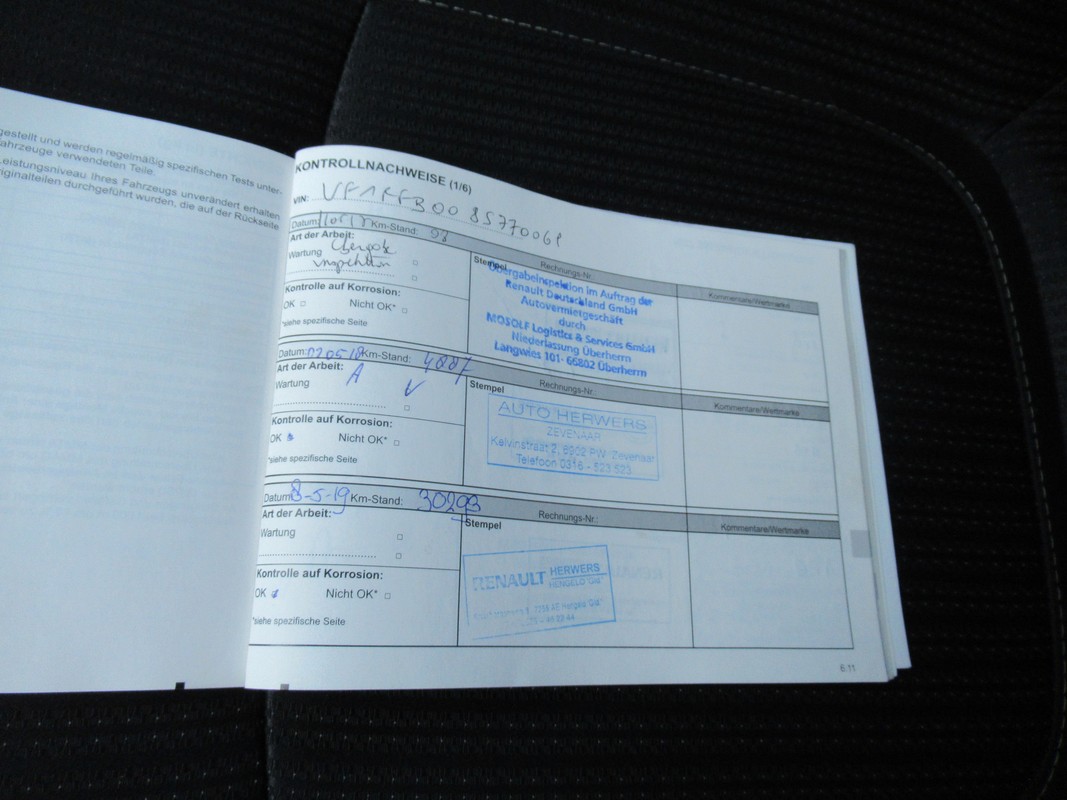 gestellt und werden regelmäßig spezifischen Tests unter-
ahrzeuge verwendeten Teile.
eistungsniveau Ihres Fahrzeugs unverändert erhalten
iginalteilen durchgeführt wurden, die auf der Rückseite
KONTROLLNACHWEISE (1/6)
VIN:
Datum: Km-Stand: 98
Art der Arbeit:
Wartung
Kontrolle auf Korrosion:
OK Nicht OK*
*siehe spezifische Seite
Stempel Rechnungs-Nr.:
Übergabeinspektion im Auftrag der
Renault Deutschland GmbH
Autovermietgeschäft
durch
MOSOLF Logistics & Services GmbH
Niederlassung Überherrn
Langwies 101- 66802 Überherrn
Kommentare/Wertmarke
Datum: Km-Stand:
Art der Arbeit: A
Wartung
Kontrolle auf Korrosion:
OK Nicht OK*
*siehe spezifische Seite
Stempel Rechnungs-Nr.:
AUTO HERWERS
ZEVENAAR
Kelvinstraat 2, 6902 PW Zevenaar
Telefoon 0316 - 523 523
Kommentare/Wertmarke
Datum: 8-5-19 Km-Stand: 30293
Art der Arbeit:
Wartung
Kontrolle auf Korrosion:
OK Nicht OK*
*siehe spezifische Seite
Stempel Rechnungs-Nr.:
RENAULT HERWERS
HENGELO Gld
Kommentare/Wertmarke
6.11